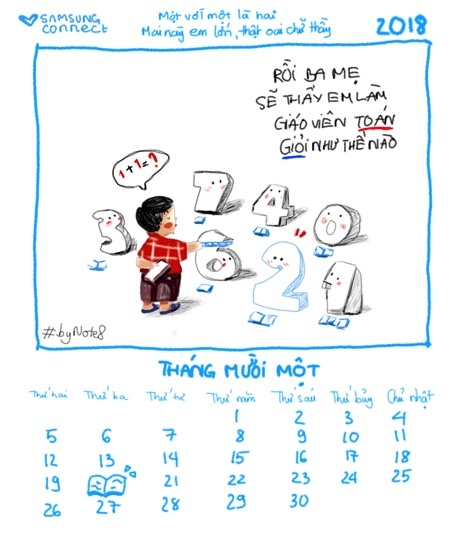 SAMSUNG
CONNECT
Một với một là hai
Mai này em lớn, thật oai chữ thầy
2018
RỒI BA MẸ
SẼ THẤY EM LÀM
GIÁO VIÊN TOÁN
GIỎI NHƯ THẾ NÀO
1+1=?
7 4
3 6 0
2 1
#.byNote8
THÁNG MƯỜI MỘT
Thứ hai Thứ ba Thứ tư Thứ năm Thứ sáu Thứ bảy Chủ nhật
1 2 3 4
5 6 7 8 9 10 11
12 13 14 15 16 17 18
19 21 22 23 24 25
26 27 28 29 30